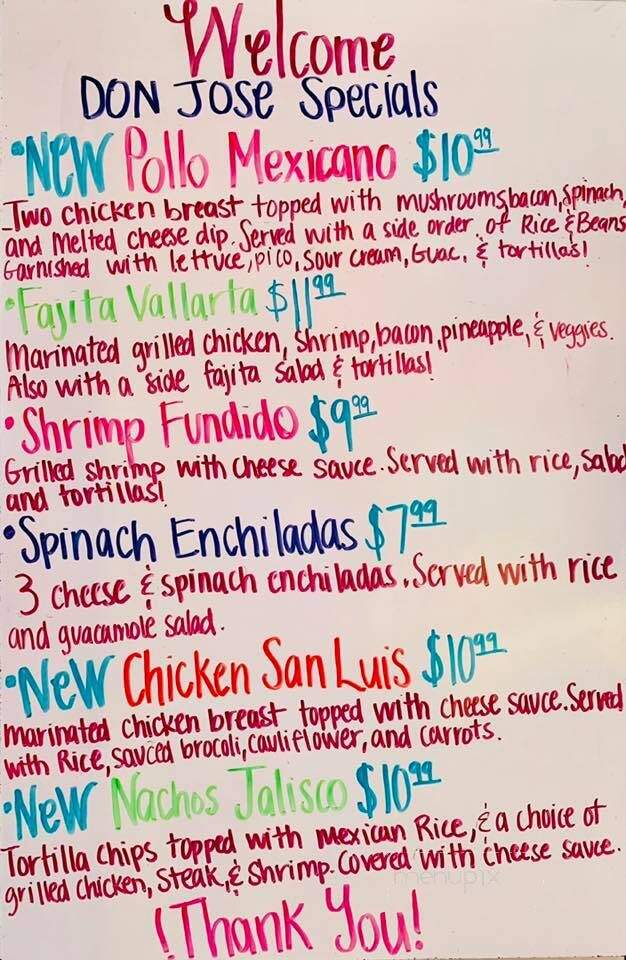 Welcome
DON JOSE Specials
•NEW Pollo Mexicano $10.99
Two chicken breast topped with mushrooms, bacon, spinach,
and Melted cheese dip. Served with a side order of Rice & Beans
Garnished with lettuce, pico, sour cream, Guac, & tortillas!
•Fajita Vallarta $11.99
Marinated grilled chicken, shrimp, bacon, pineapple, & veggies.
Also with a side fajita salad & tortillas!
•Shrimp Fundido $9.99
Grilled shrimp with cheese sauce. Served with rice, salad
and tortillas!
•Spinach Enchiladas $7.99
3 cheese & spinach enchiladas. Served with rice
and guacamole salad.
•NEW Chicken San Luis $10.99
Marinated chicken breast topped with cheese sauce. Served
with Rice, sauced brocoli, cauliflower, and carrots.
•NEW Nachos Jalisco $10.99
Tortilla chips topped with Mexican Rice, & a choice of
grilled chicken, Steak, & Shrimp. Covered with cheese sauce.
menupix
¡Thank You!